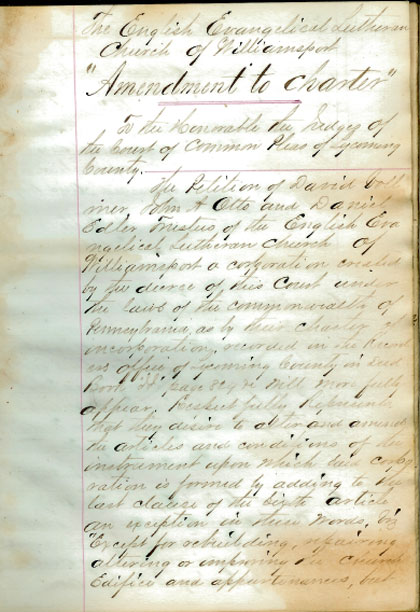 The English Evangelical Lutheran
Church of Williamsport
"Amendment to Charter"
To the Honorable the Judges of
the Court of Common Pleas of Lycoming
County.
The Petition of David
John A Otto and Daniel
Edler Trustees of the English Eva
ngelical Lutheran Church of
Williamsport a corporation created
by the decree of this Court under
the laws of the commonwealth of
Pennsylvania, as by their charter of
incorporation, recorded in the Recor
ders office of Lycoming County in Deed
Book Page will more fully
appear, Respectfully Represents
that they desire to alter and amend
the articles and conditions of the
instrument upon which said corpo
ration is formed by adding to the
last clause of the Eighth article
an exception in these words, viz
"Except for rebuilding, repairing
altering or improving the church
Edifice and appurtenances, but